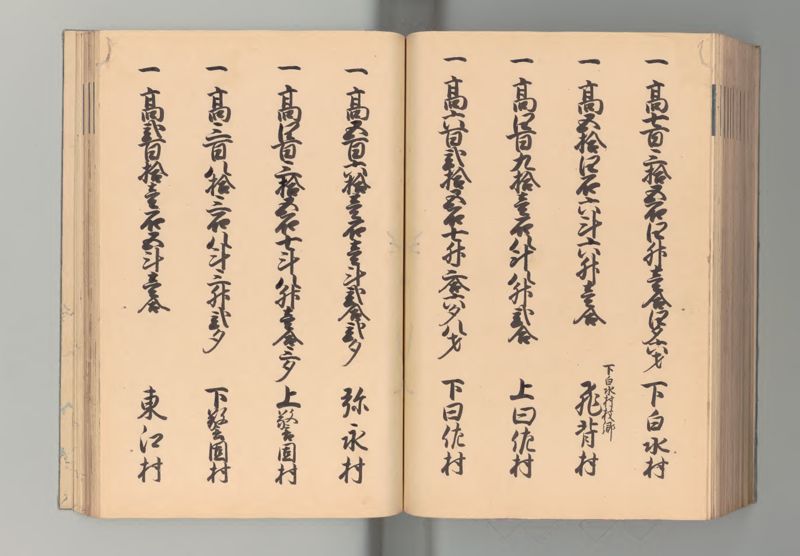 一高七百三拾五石四升壱合四夕六才 下白水村
一高五拾四石六斗六升壱合 下白水村枝郷 飛背村
一高四百九拾壱石八斗八升弐合 上曰佐村
一高六百弐拾五石七升三合六夕八才 下曰佐村
一高五百六拾壱石壱斗弐合弐夕 弥永村
一高四百三拾五石七斗八升壱合三夕 上警固村
一高三百八拾三石八斗三升弐夕 下警固村
一高弐百拾壱石五斗壱合 東江村